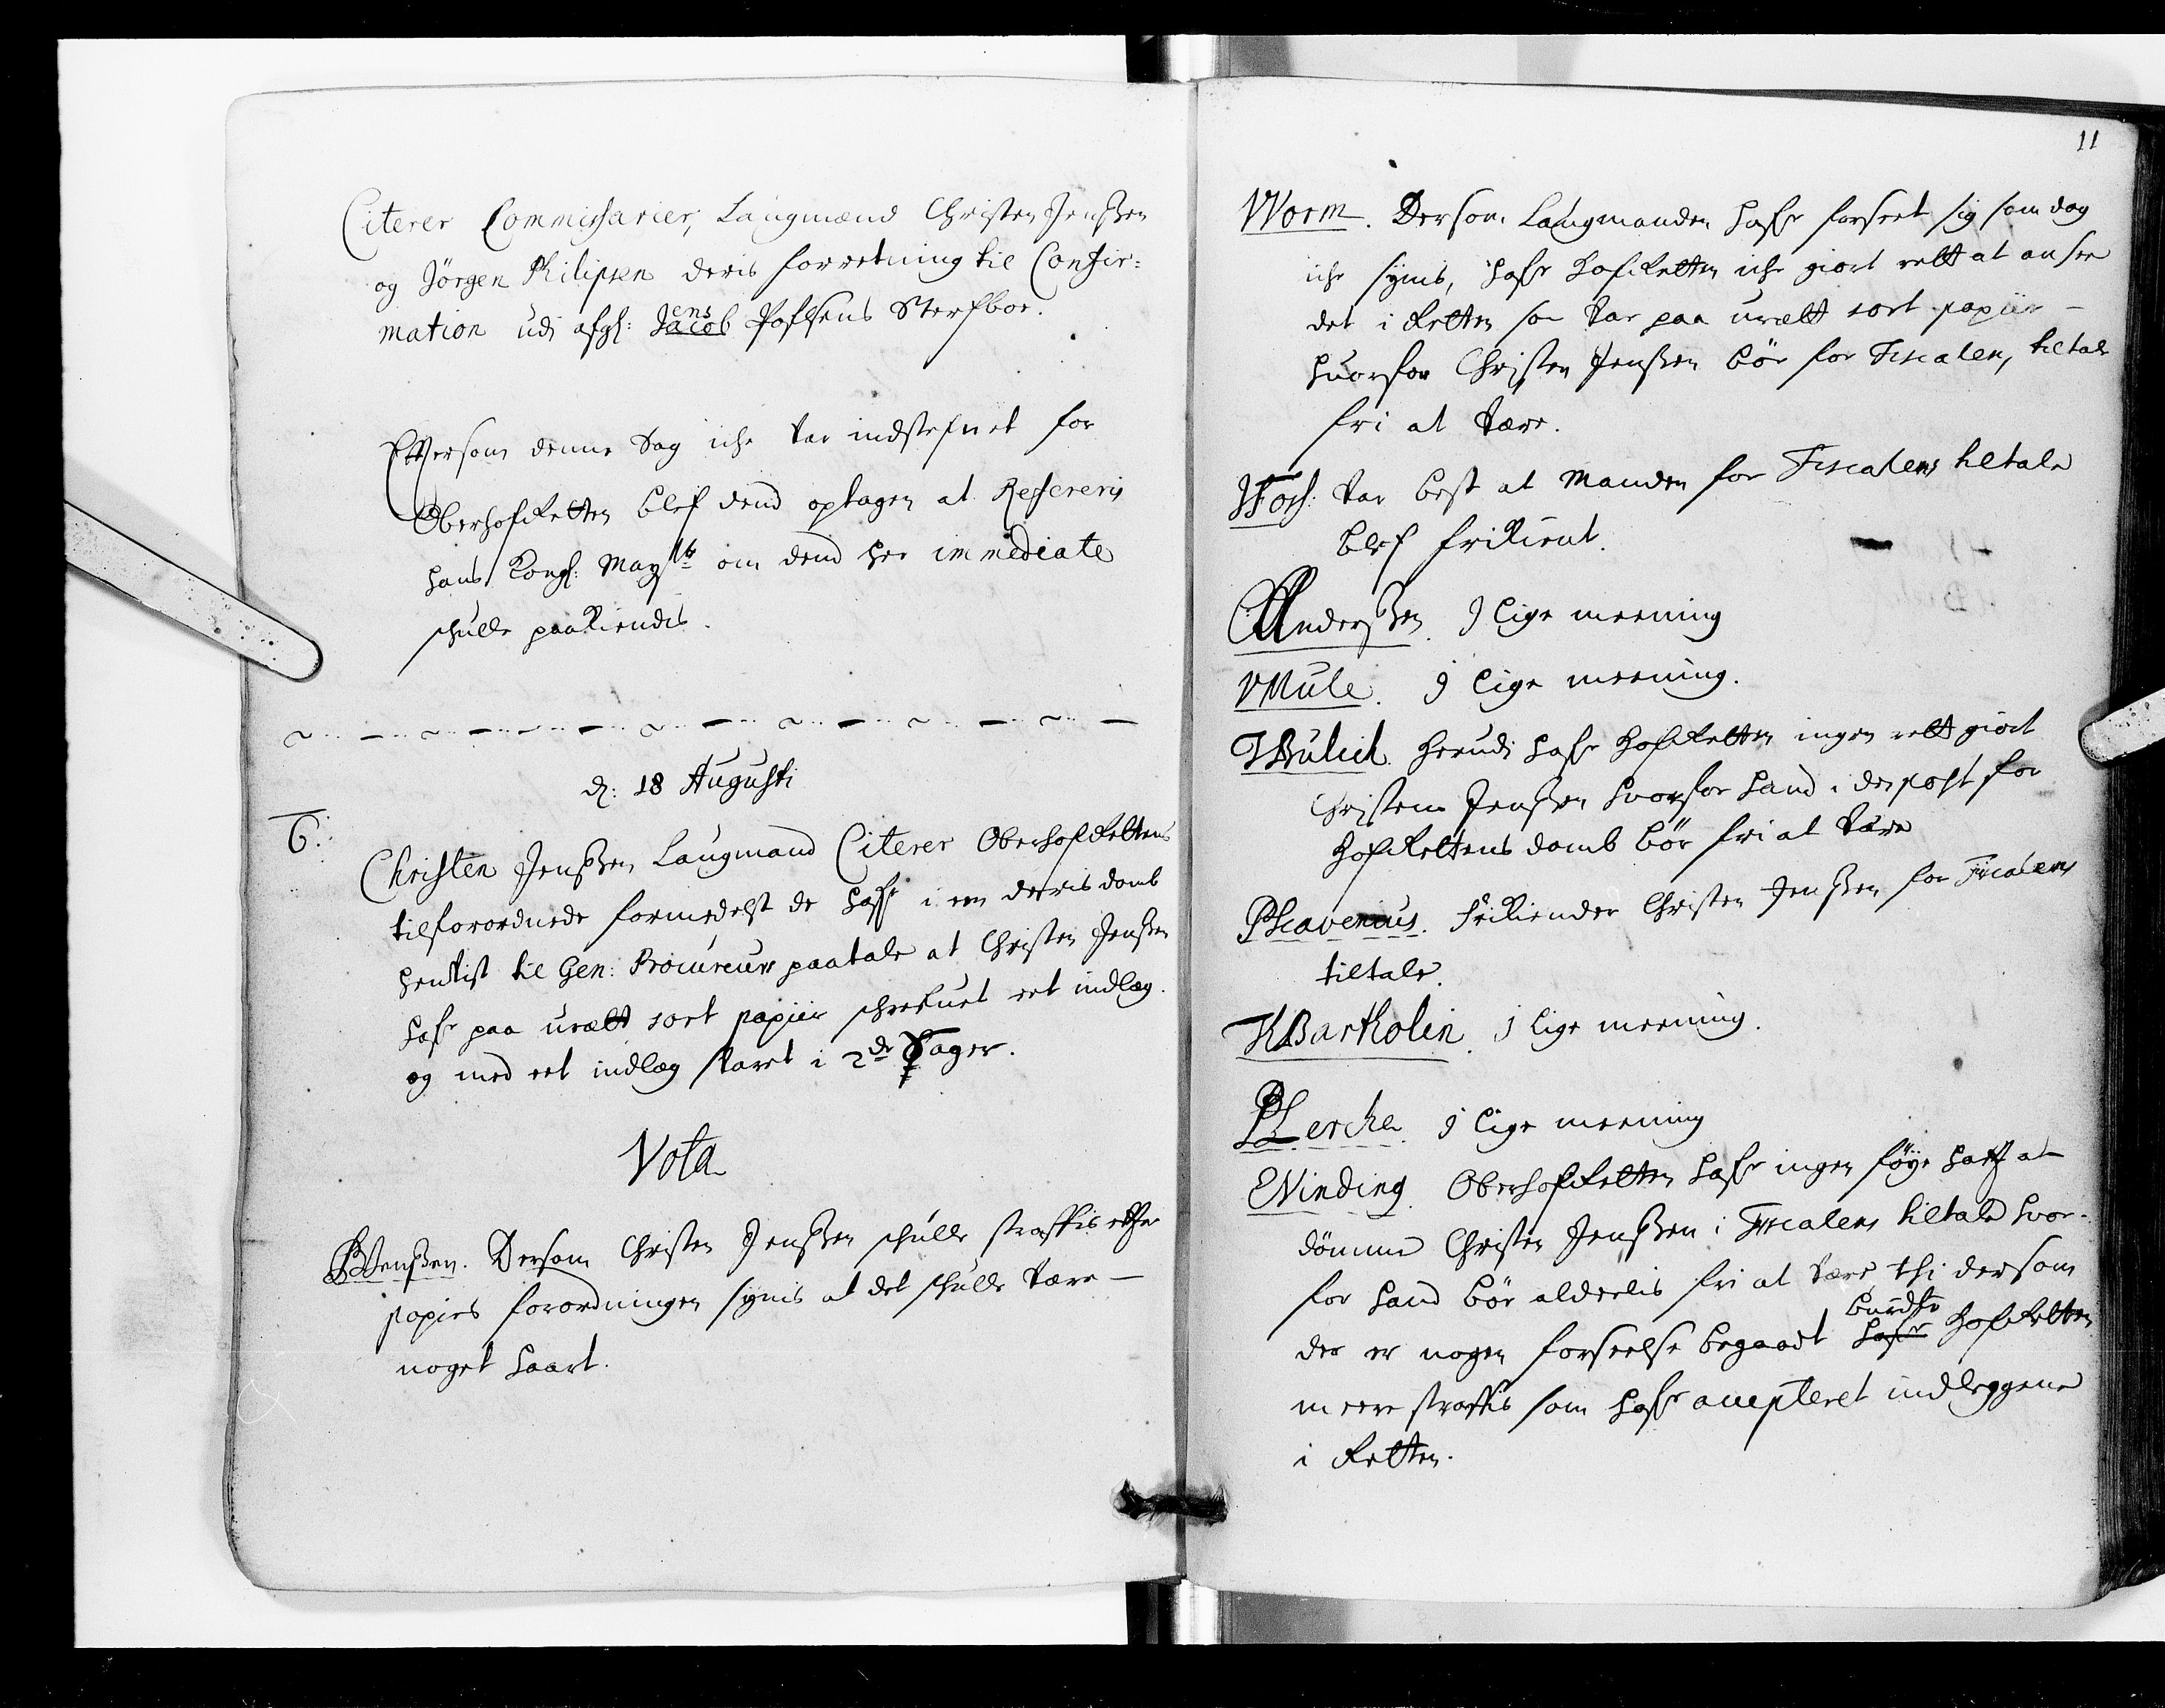 Citerer Commissarier, Laugmand Christen Jenssen
og Jörgen Philipsen deris forretning til Confir-
mation udj afgl: Jacob ens Poflsens Sterfboe.
Efftersom denne Sag iche var indstefnet for
Oberhofretten blef dend optagen at Refereris
hans Kongl: Mayts om dend her immediate
schulle paakiendis.
d: 18 Augusti
6.
Christen Jenssen Laugmand Citerer Oberhofrettens
tilforordnede formedelst de hafr i een derris domb
henvist til Gen: Procureurs paatale at Christen Jenssen
hafr paa urætt sort papiir schrefuet eet indlæg
og med eet indlæg svaret i 2de Sager.
Vota
Jenssen. Dersom Christen Jenssen schulle straffis efter
papirs forordningen synis at det schulle være –
noget haart.
11
Worm. Dersom Laugmanden hafr forseet sig som dog
iche synis, hafr hofretten iche giort rett at ansee
det i Retten som var paa urætt sort papiir –
huorfor Christen Jenssen bör for Fiscalens tiltale
fri at være.
Foss: var best at Manden for Fiscalens tiltale
blef frikient.
CAnderssen. J lige meening
VMule. J lige meening.
Wulielt. Herudi hafr hofretten ingen rett giort
Christen Jenssen hvorfor hand i den post for
hofrettens domb bör fri at være
PScavenius. frikiender Christen Jenssen for Fiscalens
tiltale.
Bartholin. J lige meening.
PLerche. J lige meening
EVinding. Oberhofretten hafr ingen föye hafft at
dömme Christen Jenssen i Fiscalens tiltale hvor-
for hand bör alderlis fri at være, thi dersom
der er nogen forseelse begaadt hafr burdte hofretten
meere straffis som hafr accepteret indleggene
i Retten.